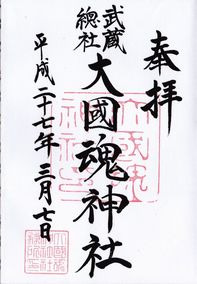 奉拝
武蔵
總社
大國魂神社
平成二十七年 三月七日